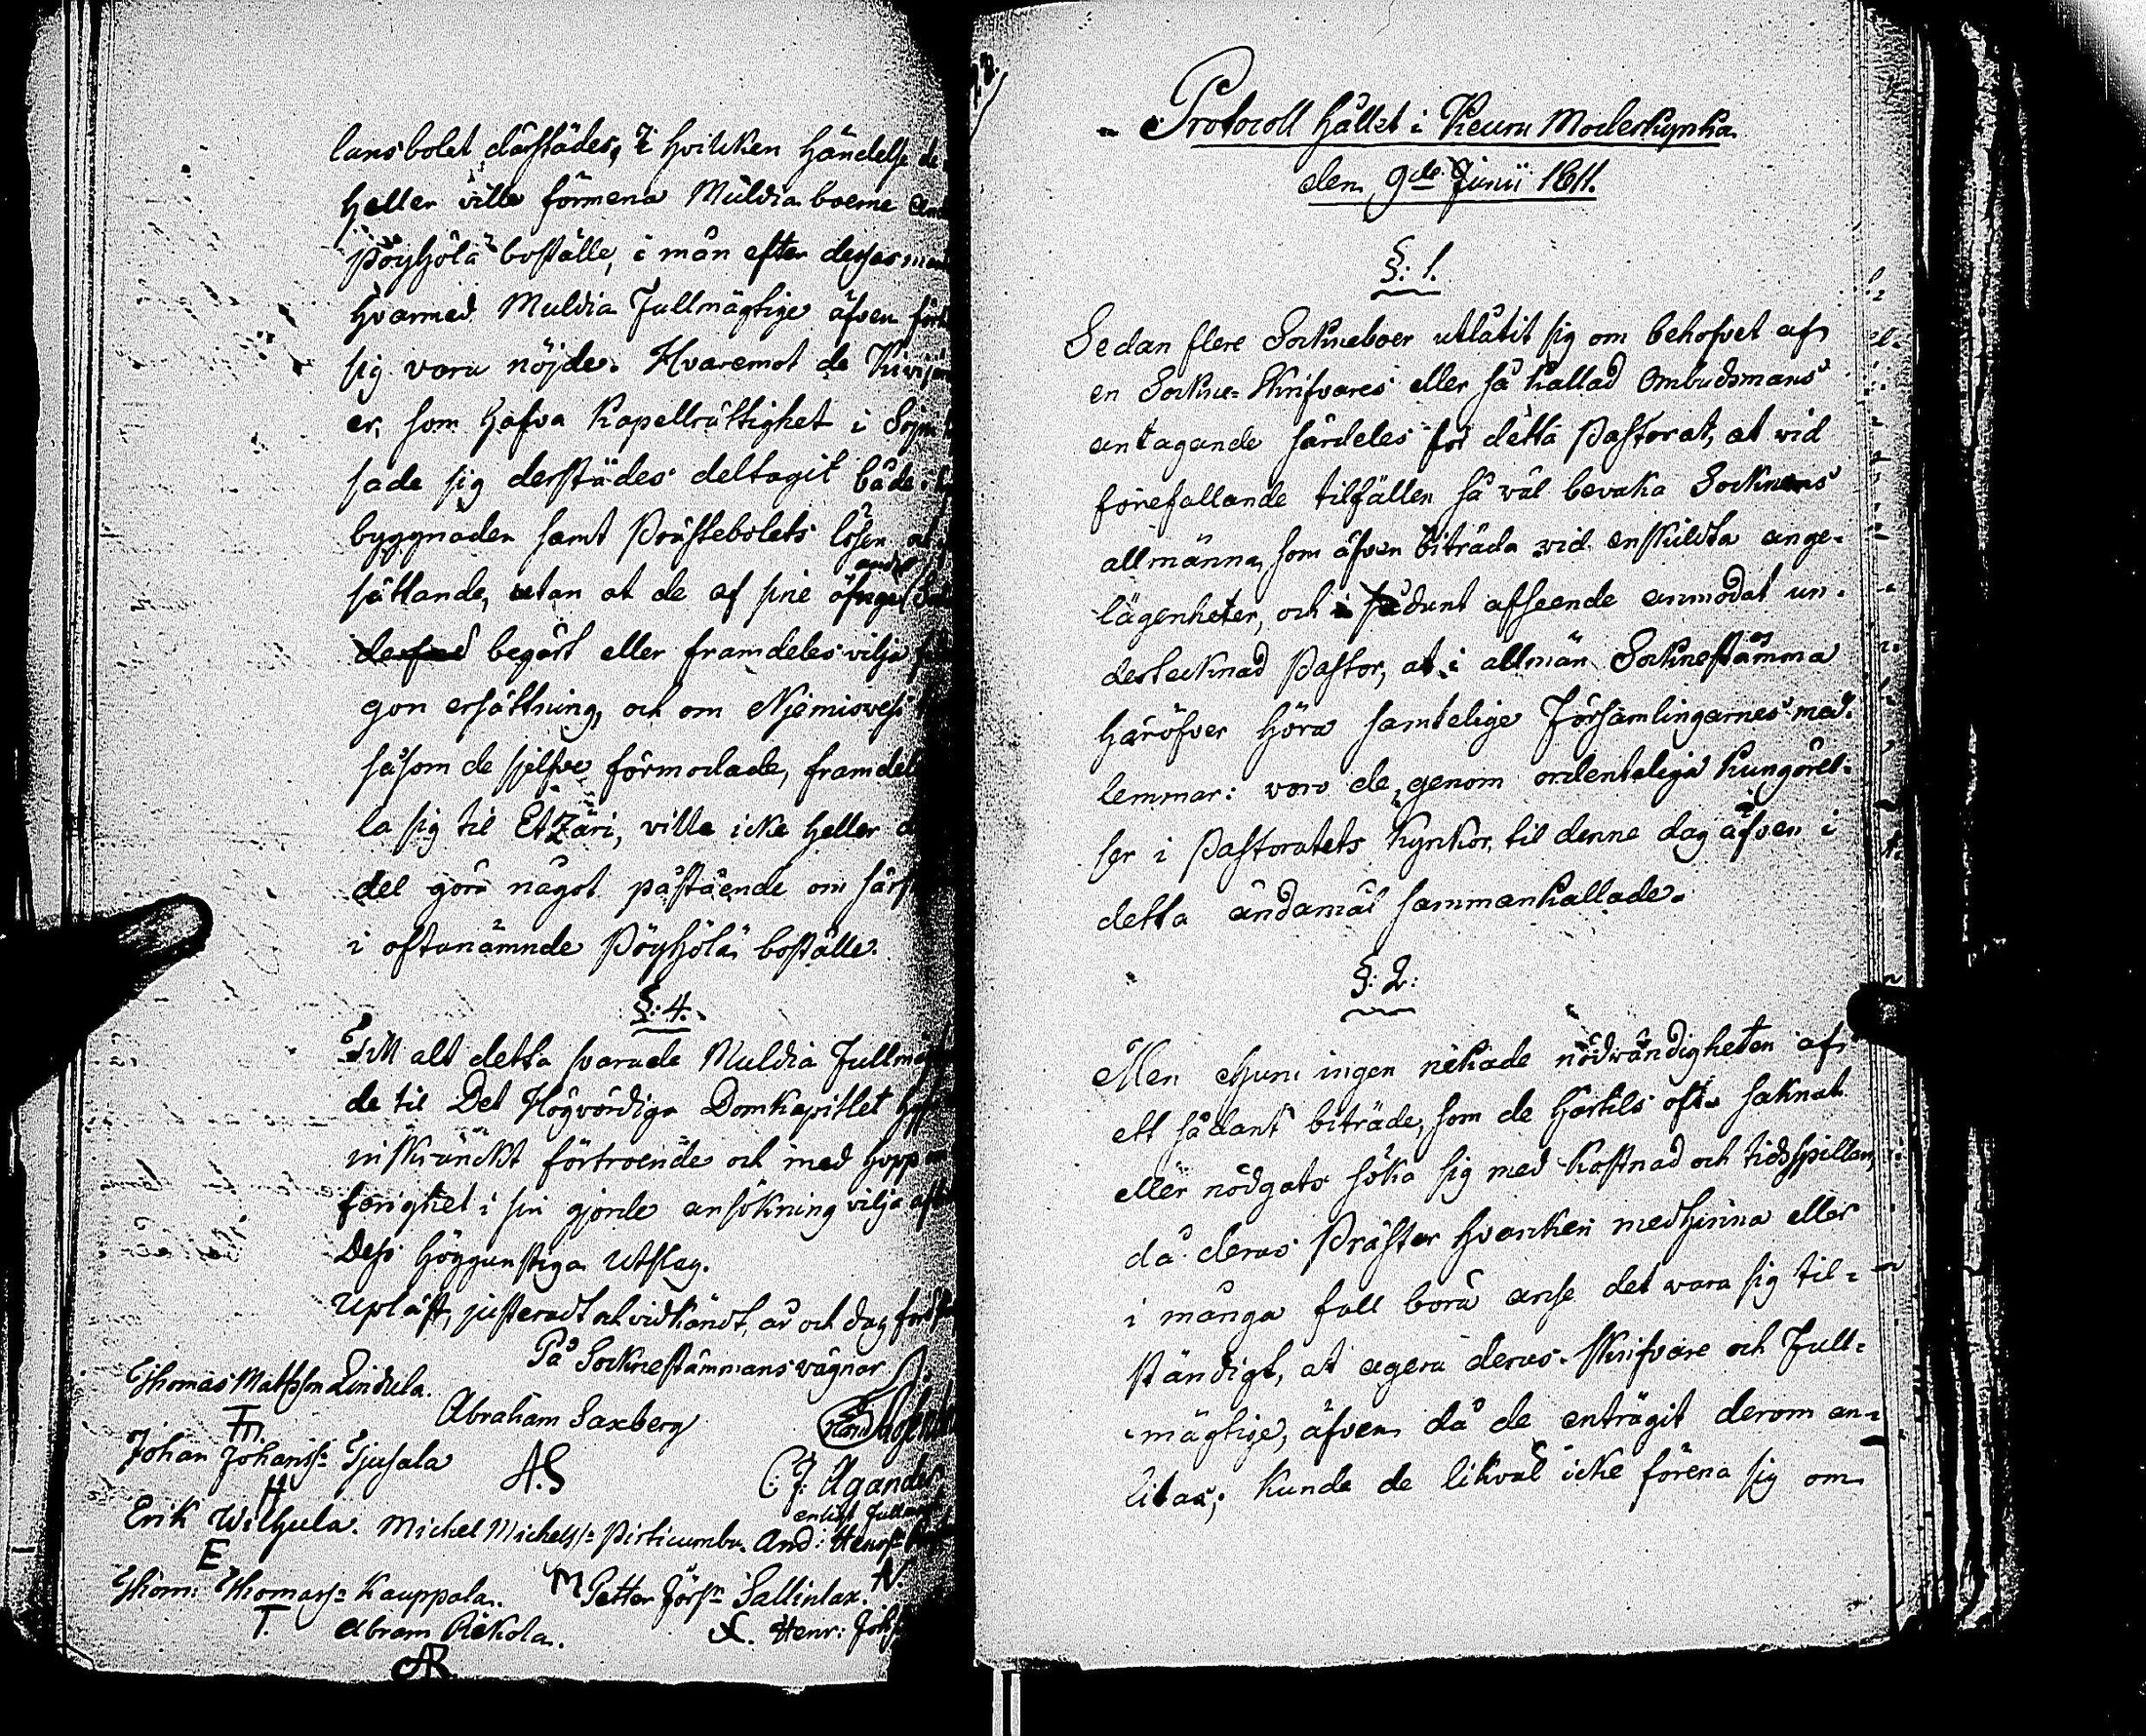 lansbolet därstädes, i hvilken händelse de
heller ville förmena Muldia boerne
Pöyhölä boställe, i mån efter dessas
hvarmed Muldia Fullmägtige äfven
sig vara nöjde. Hvaremot de
er, som hafva Kapellrättighet i
sade sig derstädes deltagit både
byggnaden samt PräStebolets lösen
andel
sättande, utan at de af sine
begärt eller framdeles vilja
gon ersättning, och om Njemisvesi
såsom de sjelfve förmodade,
la sig til Etzäri, ville icke heller
del göra något påstående om
i oftanämnde Pöyhölä boställe.
§: 4.
Till alt detta svarade Muldia
de til Det Högvördiga Domkapitlet
inskränckt förtroende och med hopp
i sin gjorde ansökning vilja
Dess höggunstiga Utslag.
Upläst, justeradt och vidkändt, år och dag
På Socknestämmans vägnar
Thomas Mathsson Lindula.
Abraham Saxberg
Johan Johanss: Tjusala
A.S
C. J. Agander
H
enligt
Erik Wilhula. Michel Michelss: Pirticumbu. And: Henrss:
E
Thom: Thomass: Kauppala. M Petter Jörs: Sallinlax.
T. Abram Rekola. Henr:
AR
Protocoll hållet i Keuru Moderkyrka
den 9de Junii 1811.
§: 1.
Sedan flere Sockneboer utlåtit sig om behofvet af
en Sockne-Skrifvares eller så kallad Ombudsmans
antagande särdeles för detta Pastorat, at vid
förefallande tilfällen så väl bevaka Socknens
allmänna, som äfven biträda vid enskildta ange-
lägenheter, och i sådant afseende anmodat un-
dertecknad Pastor, at i allmän Sockneståmma
häröfver höra samtelige Församlingarnes med-
lemmar: voro de, genom ordenteliga kungörel-
ser i Pastoratets Kyrkor, til denne dag äfven i
detta ändamål sammankallade.
§: 2:
Men ehuru ingen nekade nödvändigheten af
ett sådant biträde, som de härtils ofta saknat
eller nödgats söka sig med kostnad och tidsspillan,
då deras Präster hvarken medhinna eller
i många fall böra anse det vara sig til-
ständigt, at agera deras Skrifvare och Full-
mägtige, äfven då de enträgit derom an-
litas; kunde de likväl icke förena sig om